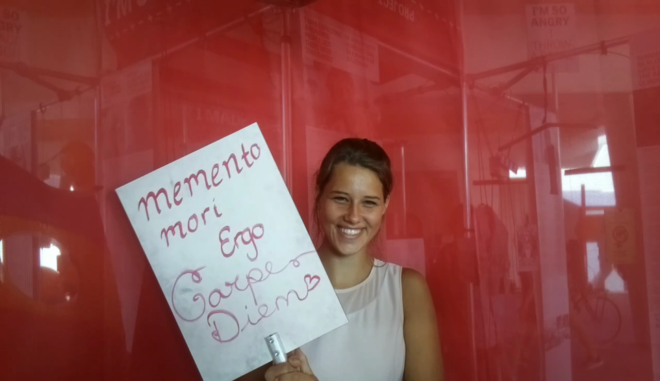 I'M SO
ANGRY
memento
mori
Ergo
Carpe
Diem